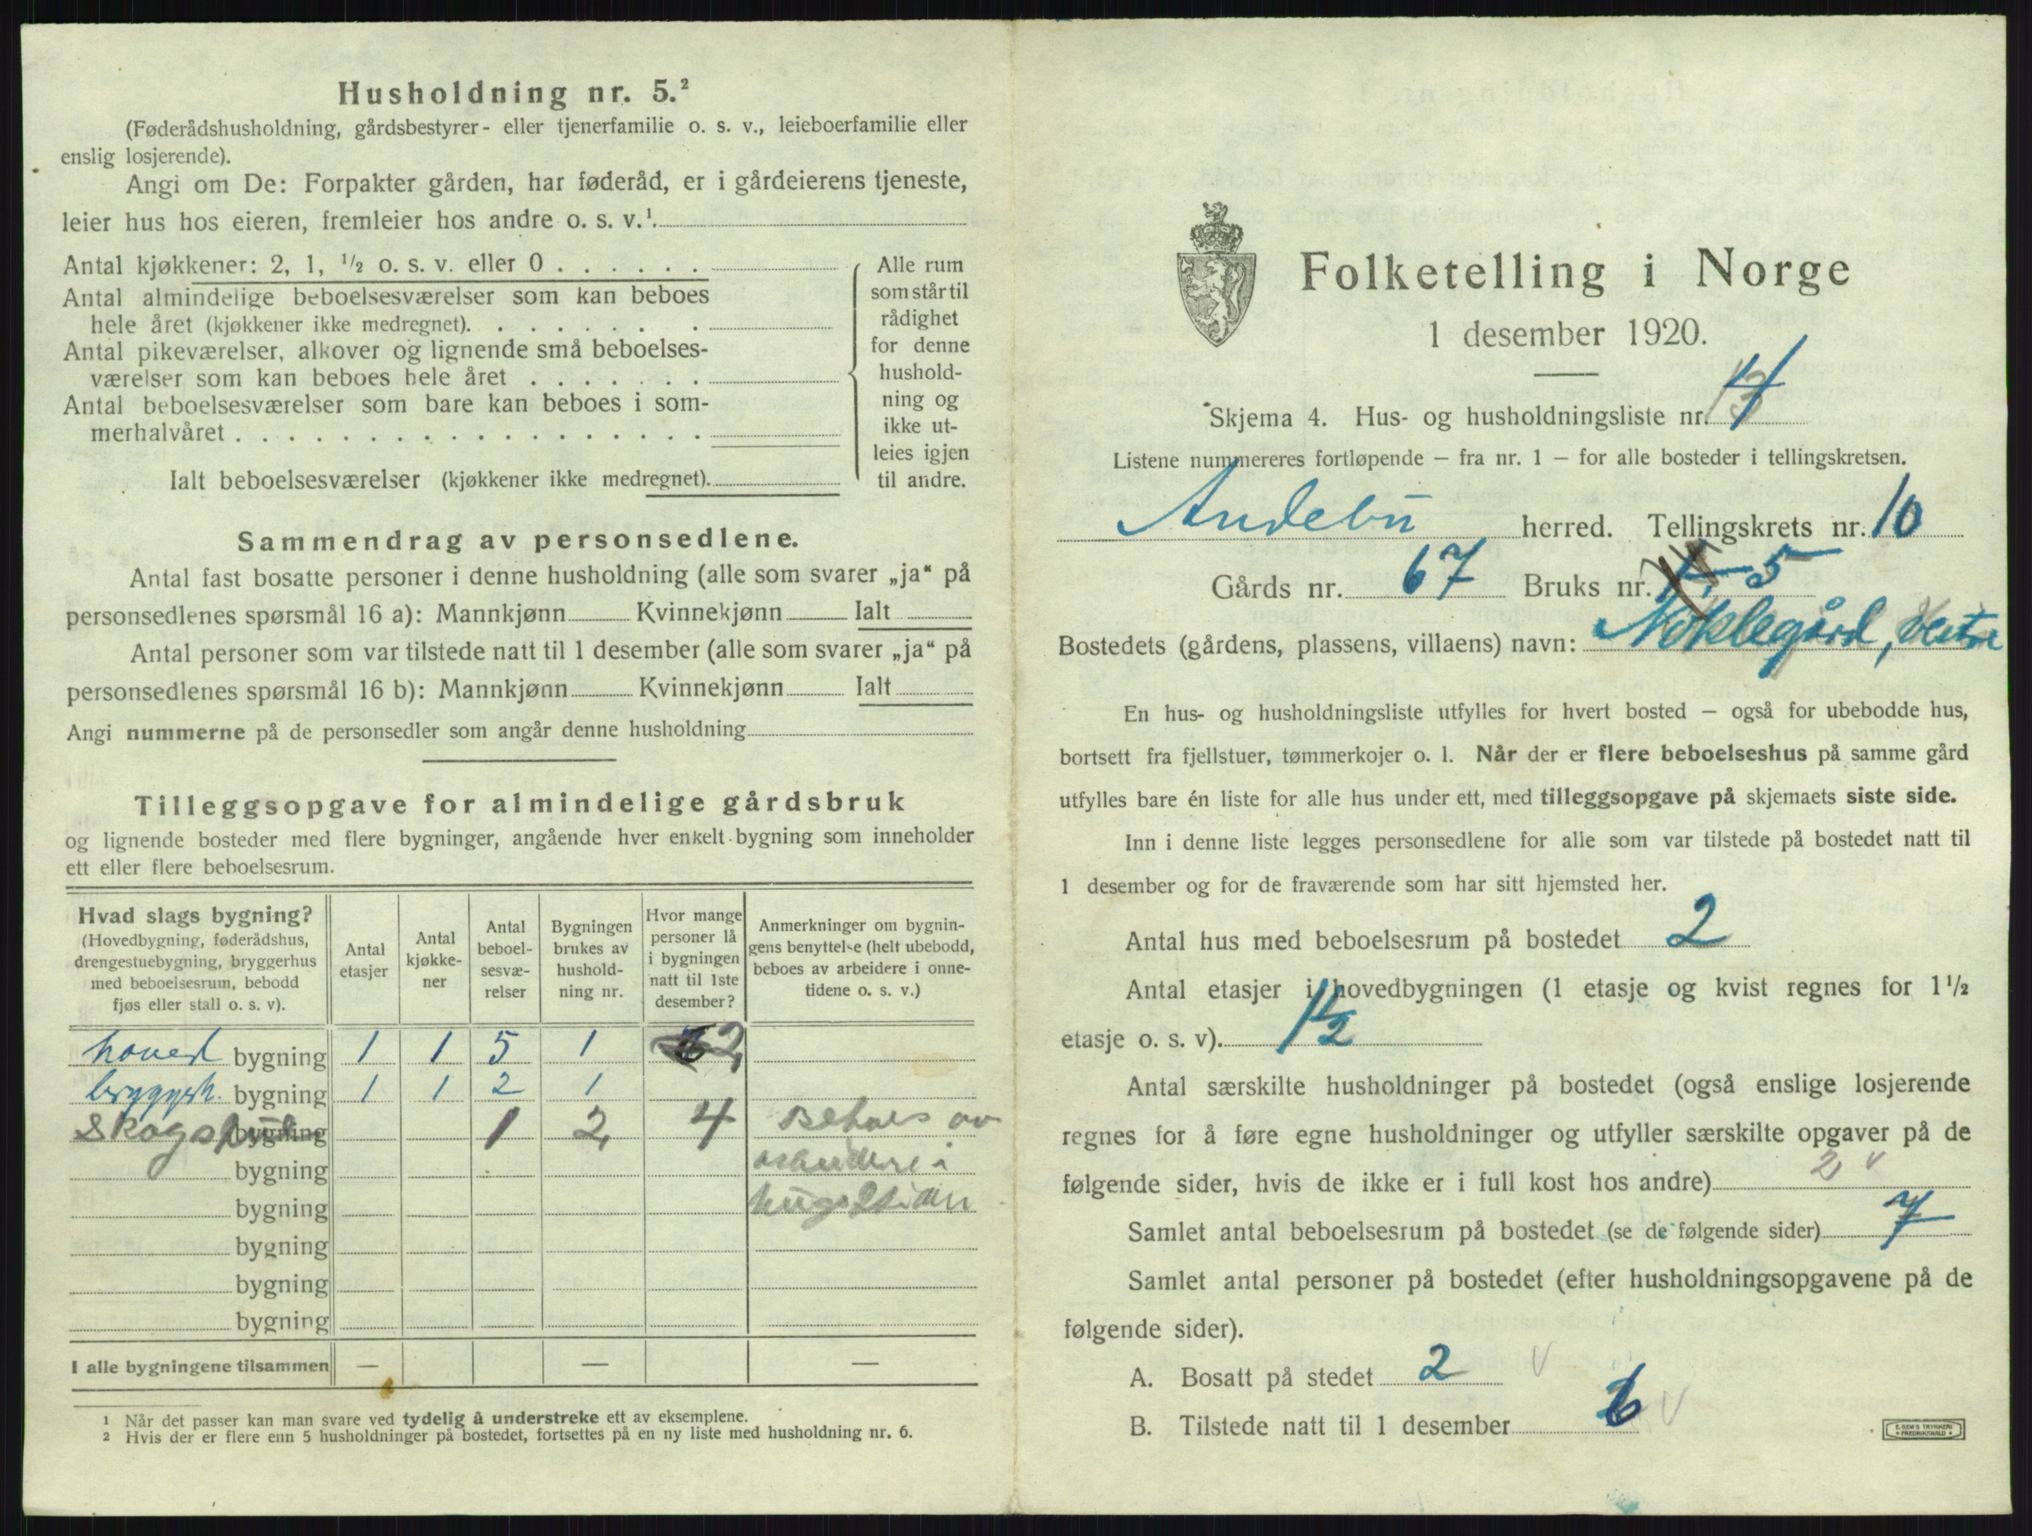 Husholdning nr. 5.²
(Føderådshusholdning, gårdsbestyrer- eller tjenerfamilie o. s. v., leieboerfamilie eller
enslig losjerende).
Angi om De: Forpakter gården, har føderåd, er i gårdeierens tjeneste,
leier hus hos eieren, fremleier hos andre o. s. v.¹.
Antal kjøkkener: 2, 1, ½ o. s. v. eller 0 . . . . . .
Antal almindelige beboelsesværelser som kan beboes
hele året (kjøkkener ikke medregnet). . . . . . . .
Antal pikeværelser, alkover og lignende små beboelses-
værelser som kan beboes hele året . . . . . . .
Antal beboelsesværelser som bare kan beboes i som-
merhalvåret . . . . . . . . . . . . . . . . . .
Ialt beboelsesværelser (kjøkkener ikke medregnet).
Alle rum
som står til
rådighet
for denne
hushold-
ning og
ikke ut-
leies igjen
til andre.
Sammendrag av personsedlene.
Antal fast bosatte personer i denne husholdning (alle som svarer „ja“ på
personsedlenes spørsmål 16 a): Mannkjønn Kvinnekjønn Ialt
Antal personer som var tilstede natt til 1 desember (alle som svarer „ja“ på
personsedlenes spørsmål 16 b): Mannkjønn Kvinnekjønn Ialt
Angi nummerne på de personsedler som angår denne husholdning
Tilleggsopgave for almindelige gårdsbruk
og lignende bosteder med flere bygninger, angående hver enkelt bygning som inneholder
ett eller flere beboelsesrum.
Hvad slags bygning?
(Hovedbygning, føderådshus,
drengestuebygning, bryggerhus
med beboelsesrum, bebodd
fjøs eller stall o. s. v).
Antal
etasjer
Antal
kjøkke-
ner
Antal
beboel-
sesvæ-
relser
Bygningen
brukes av
hushold-
ning nr.
Hvor mange
personer lå
i bygningen
natt til 1ste
desember?
Anmerkninger om bygnin-
gens benyttelse (helt ubebodd,
beboes av arbeidere i onne-
tidene o. s. v.)
hoved bygning 1 1 5 1 2
bryggerh. bygning 1 1 2 1
Skogs bygning 1 2 4 Beboes av
bygning i
bygning hugstiden
bygning
bygning
bygning
I alle bygningene tilsammen — — —
1 Når det passer kan man svare ved tydelig å understreke ett av eksemplene.
2 Hvis der er flere enn 5 husholdninger på bostedet, fortsettes på en ny liste med husholdning nr. 6.
Folketelling i Norge
1 desember 1920.
Skjema 4. Hus- og husholdningsliste nr. 13 4
Listene nummereres fortløpende – fra nr. 1 – for alle bosteder i tellingskretsen.
Andebu herred. Tellingskrets nr. 10
Gårds nr. 67 Bruks nr. 5
Bostedets (gårdens, plassens, villaens) navn: Nøklegård, Vestre
En hus- og husholdningsliste utfylles for hvert bosted – også for ubebodde hus,
bortsett fra fjellstuer, tømmerkojer o. l. Når der er flere beboelseshus på samme gård
utfylles bare én liste for alle hus under ett, med tilleggsopgave på skjemaets siste side.
Inn i denne liste legges personsedlene for alle som var tilstede på bostedet natt til
1 desember og for de fraværende som har sitt hjemsted her.
Antal hus med beboelsesrum på bostedet 2
Antal etasjer i hovedbygningen (1 etasje og kvist regnes for 1½
etasje o. s. v). 1½
Antal særskilte husholdninger på bostedet (også enslige losjerende
regnes for å føre egne husholdninger og utfyller særskilte opgaver på de
følgende sider, hvis de ikke er i full kost hos andre) 2 v
Samlet antal beboelsesrum på bostedet (se de følgende sider) 7
Samlet antal personer på bostedet (efter husholdningsopgavene på de
følgende sider).
A. Bosatt på stedet 2 v
B. Tilstede natt til 1 desember 6 v
E. SEM'S TRYKKERI
FREDRIKSHALD